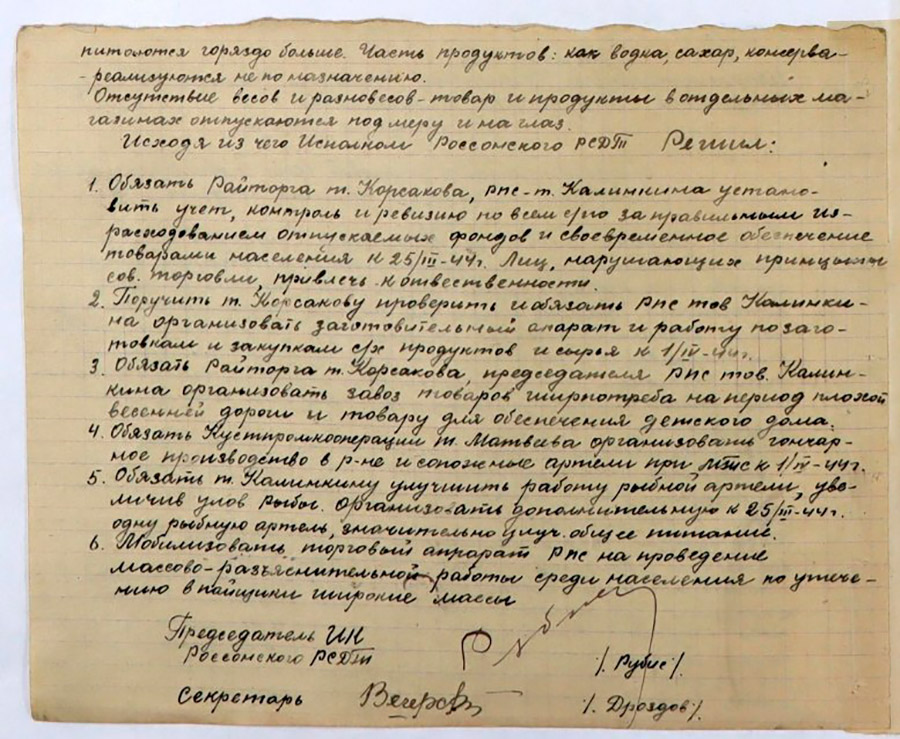 питаются гораздо больше. Часть продуктов: как водка, сахар, консерва-
-реализуются не по назначению.
Отсутствие весов и разновесов-товар и продукты в отдельных ма-
газинах отпускаются под меру и на глаз.
Исходя из чего Исполком Россонского РСДТ Решил:
1. Обязать Райторга т. Корсакова, РПС-т. Калинкина устано-
вить учет, контроль и ревизию по всем с/по за правильным из-
расходованием отпускаемых фондов и своевременное обеспечение
товарами населения к 25/III-44г. Лиц, нарушающих принципы
сов. торговли, привлечь к отвественности.
2. Поручить т. Корсакову проверить и обязать РПС тов Калинки-
на организовать заготовительный апарат и работу по заго-
товкам и закупкам с/х продуктов и сырья к 1/IV-44г.
3. Обязать Райторга т. Корсакова, председателя РПС тов. Калин-
кина организовать завоз товаров ширпотреба на период плохой
весенней дороги и товару для обеспечения детского дома.
4. Обязать Кустпромкооперации т. Матвеева организовать гончар-
ное производство в р-не и сапожные артели при МТМ к 1/IV-44г.
5. Обязать т. Калинкину улучшить работу рыбной артели, уве-
личив улов рыбы. Организовать дополнительную к 25/III-44г.
одну рыбную артель, значительно улуч. общее питание.
6. Мобилизовать торговый аппарат РПС на проведение
массово-разъяснительной работы среди населения по
нию в пайщики широкие массы
Председатель ИК
Россонского РСДТ /. Рубис/.
Секретарь /. Дроздов/.